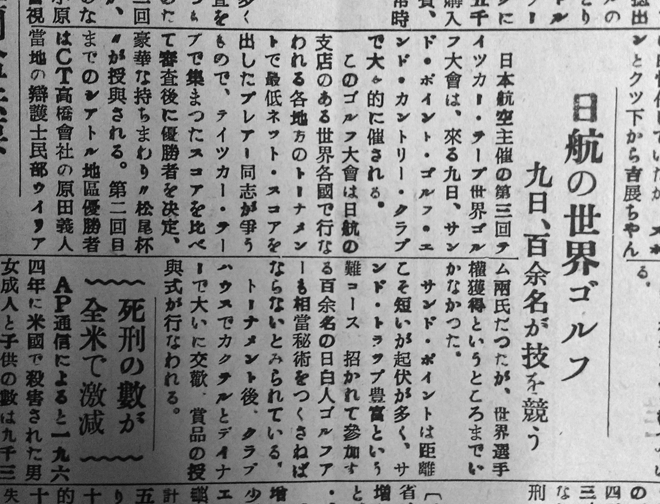 ンとクツ下から吉展ちゃん
る。
日航の世界ゴルフ
九日、百余名が技を競う
日本航空主催の第三回テ
イツカー・テープ世界ゴル
フ大會は、來る九日、サン
ド・ポイント・ゴルフ・エ
ンド・カントリー・クラブ
で大々的に催される。
このゴルフ大會は日航の
支店のある世界各國で行な
われる各地方のトーナメン
トで最低ネット・スコアを
出したプレアー同志が爭う
もので、テイツカー・テー
プで集まつたスコアを比べ
て審査後に優勝者を決定、
豪華な持ちまわり〃松尾杯
〃が授與される。第二回目
までのシアトル地區優勝者
はCT高橋會社の原田義人
當地の辯護士民部ウイリア
ム兩氏だつたが、世界選手
權獲得というところまでい
かなかつた。
サンド・ポイントは距離
こそ短いが起伏が多く、サ
ンド・トラップ豊富という
難コース 招かれて參加す
る百余名の日白人ゴルフア
ーも相當秘術をつくさねば
ならないとみられている。
トーナメント後、クラブ
ハウスでカクテルとデイナ
ーで大いに交歡、賞品の授
與式が行なわれる。
死刑の數が
全米で激減
AP通信によると一九六
四年に米國で殺害された男
女成人と子供の數は九千三